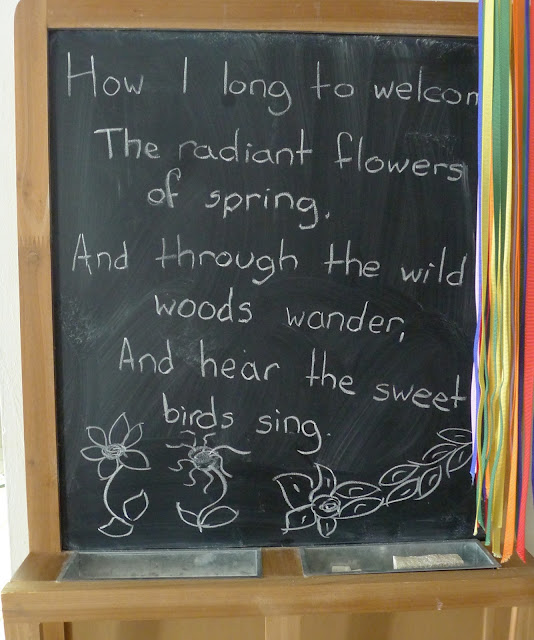 How I long to welcom
The radiant flowers
of spring.
And through the wild
woods wander,
And hear the sweet
birds sing.